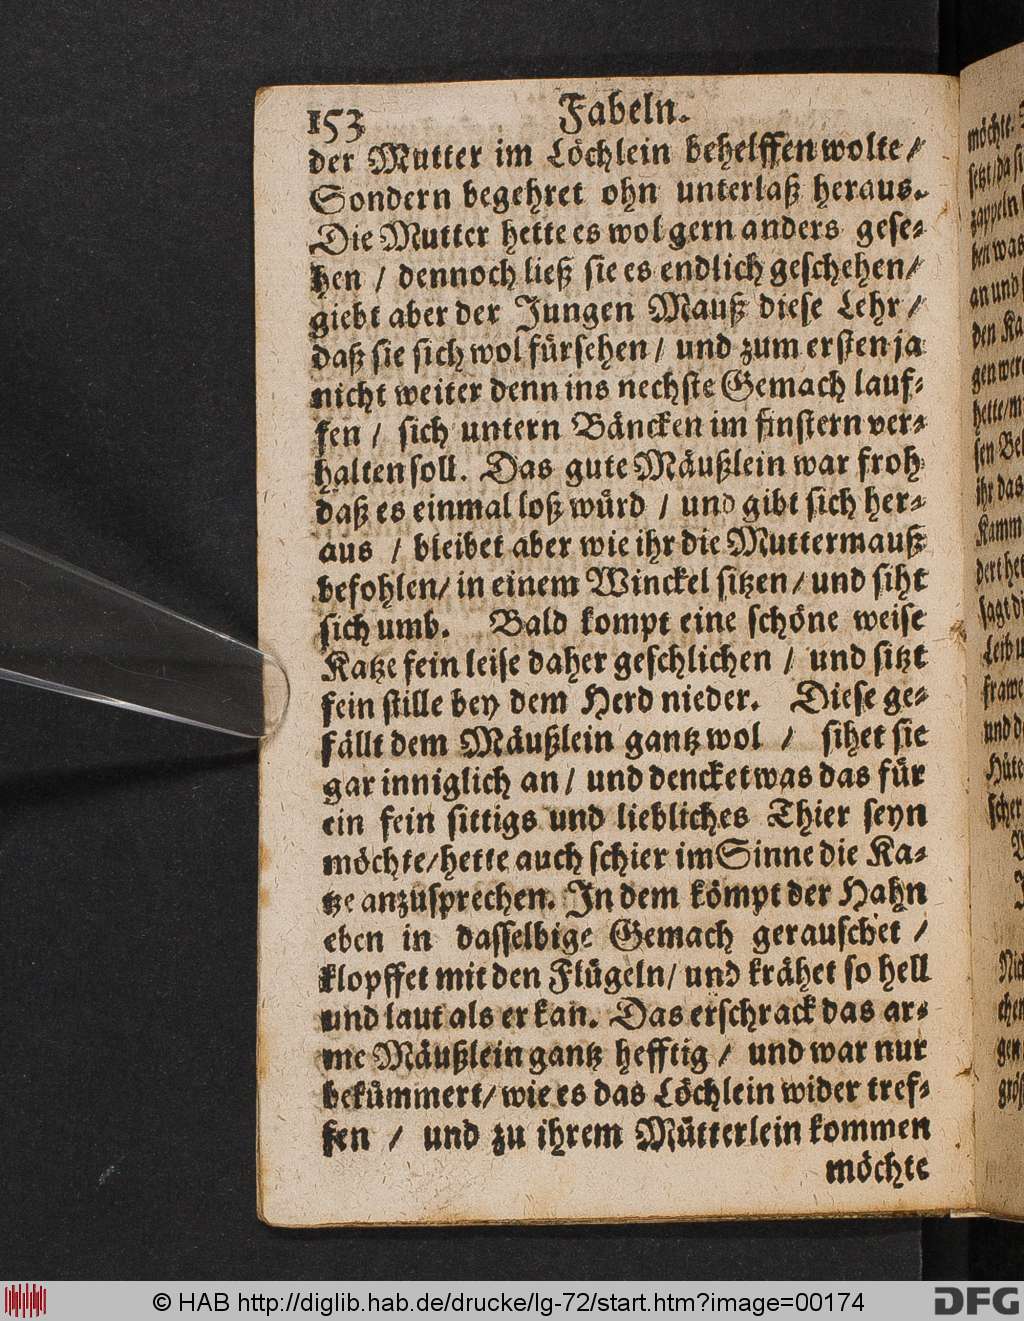 153 Fabeln.
der Mutter im Löchlein behelffen wolte /
Sondern begehret ohn unterlaß heraus.
Die Mutter hette es wol gern anders gese-
hen / dennoch ließ sie es endlich geschehen /
giebt aber der Jungen Mauß diese Lehr /
daß sie sich wol fürsehen / und zum ersten ja
nicht weiter denn ins nechste Gemach lauf-
fen / sich untern Bäncken im finstern ver-
halten soll. Das gute Mäußlein war froh
daß es einmal loß würd / und gibt sich her-
aus / bleibet aber wie ihr die Muttermauß
befohlen / in einem Winckel sitzen / und siht
sich umb. Bald kompt eine schöne weise
Katze fein leise daher geschlichen / und sitzt
fein stille bey dem Herd nieder. Diese ge-
fällt dem Mäußlein gantz wol / sihet sie
gar inniglich an / und dencket was das für
ein fein sittigs und liebliches Thier seyn
möchte / hette auch schier im Sinne die Ka-
tze anzusprechen. In dem kömpt der Hahn
eben in dasselbige Gemach gerauschet /
klopffet mit den Flügeln / und krähet so hell
und laut als er kan. Das erschrack das ar-
me Mäußlein gantz hefftig / und war nur
bekümmert / wie es das Löchlein wider tref-
fen / und zu ihrem Mütterlein kommen
möchte
© HAB http://diglib.hab.de/drucke/lg-72/start.htm?image=00174
DFG